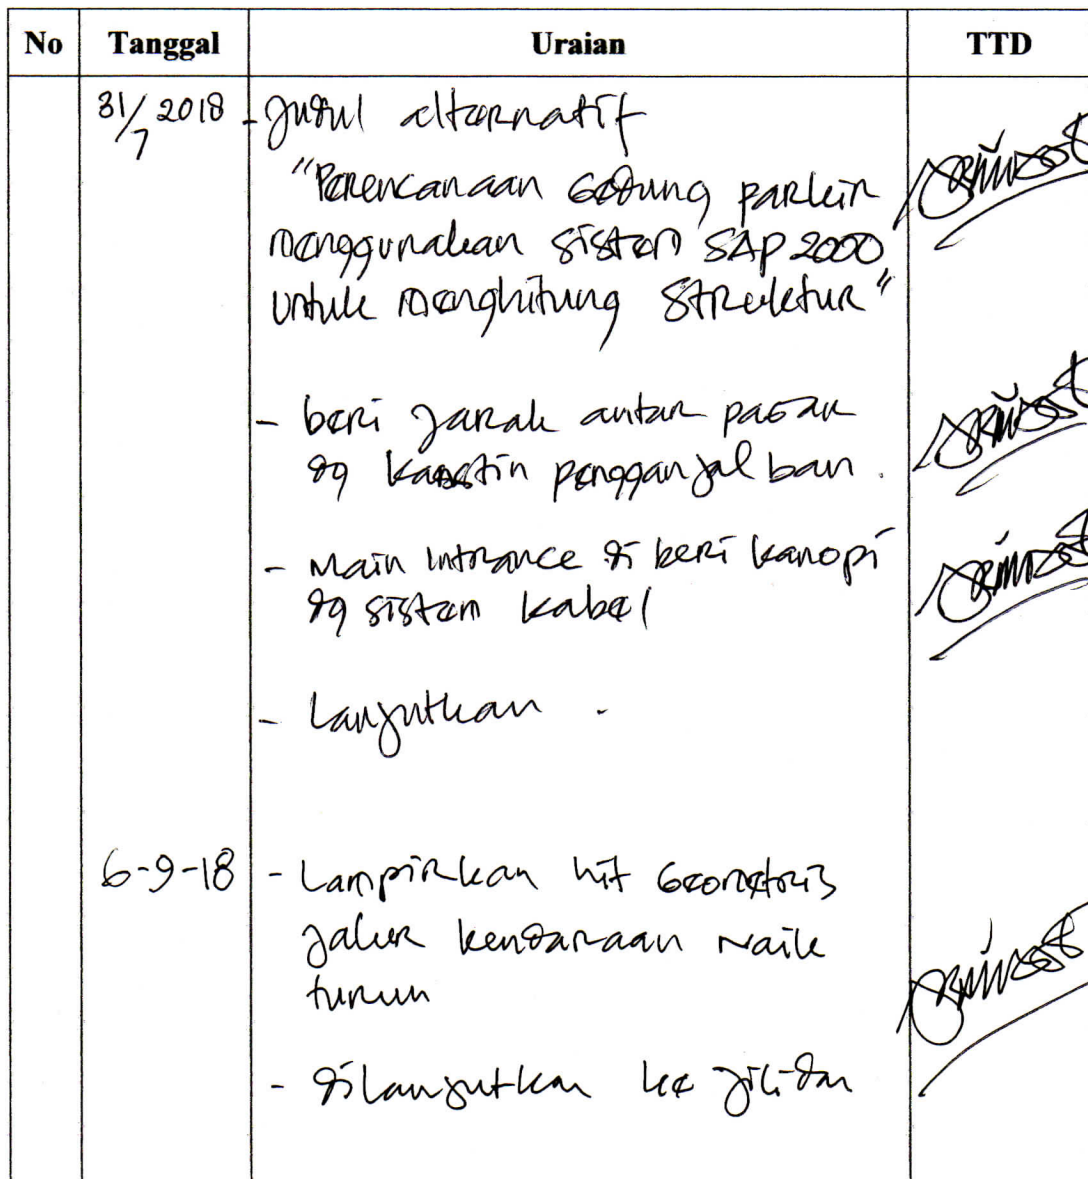 No Tanggal Uraian TTD
31/7 2018 - Judul alternatif
"Perencanaan Gedung parkir
menggunakan sistem SAP 2000
untuk menghitung Struktur"
- beri jarak antar pagar
dg kanstin pengganjal ban.
- Main Intrance di beri kanopi
dg sistem kabel
- Lanjutkan.
6-9-18 - Lampirkan hit Geometris
jalur kendaraan Naik
turun
- dilanjutkan ke jilidan